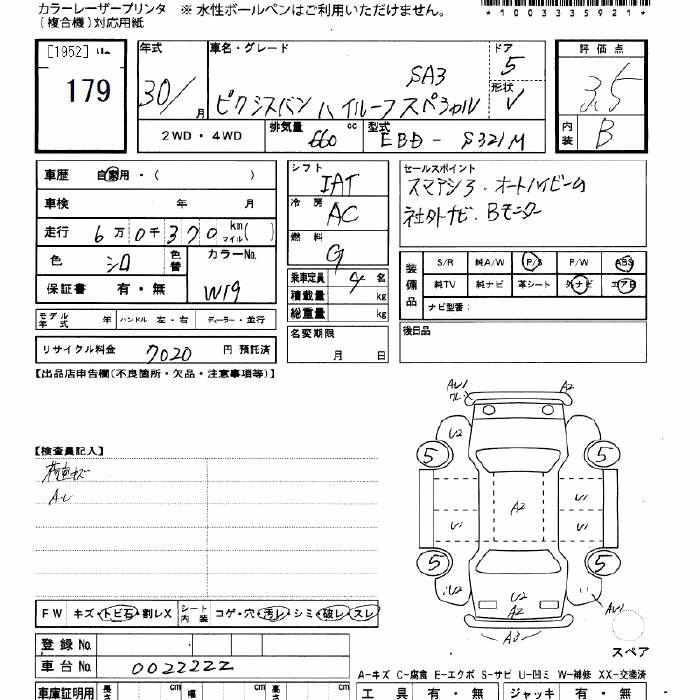 カラーレーザープリンタ ※ 水性ボールペンはご利用いただけません。
(複合機)対応用紙
*1003335921*
[1952]
179
年式
30/ 月
車名・グレード
SA3
ピクシスバン ハイルーフスペシャル
ドア
5
形状
V
評価点
3.5
内装
B
2WD・4WD
排気量 660 cc
型式 EBD-S321M
車歴 自家用・( )
車検 年 月
走行 6万0千370km マイル( )
色 シロ 色替
カラーNo. W19
保証書 有・無
モデル年式 年 ハンドル 左・右 ディーラー・並行
リサイクル料金 7020 円 預託済
シフト IAT
冷房 AC
燃料 G
乗車定員 4 名
積載量 kg
総重量 kg
名変期限
月 日
セールスポイント
スマアシ3・オートハイビーム
社外ナビ・Bモニター
装備品
S/R 純A/W P/S P/W ABS
純TV 純ナビ 革シート 外ナビ エアB
ナビ型番:
後日品
【出品店申告欄(不良箇所・欠品・注意事項等)】
【検査員記入】
AU1
A2
U2
5
5
U1
U1
A2
U1
U1
5
5
U2
U2
A2
AU1
A3
スペア
FW キズ・トビ石・割レX シート内装 コゲ・穴・汚レ・シミ・破レ・スレ
登録 No.
車台 No. 0022222
A-キズ C-腐食 E-エクボ S-サビ U-凹ミ W-補修 XX-交換済
車庫証明用 長さ cm 幅 cm 高さ cm
工具 有・無 ジャッキ 有・無